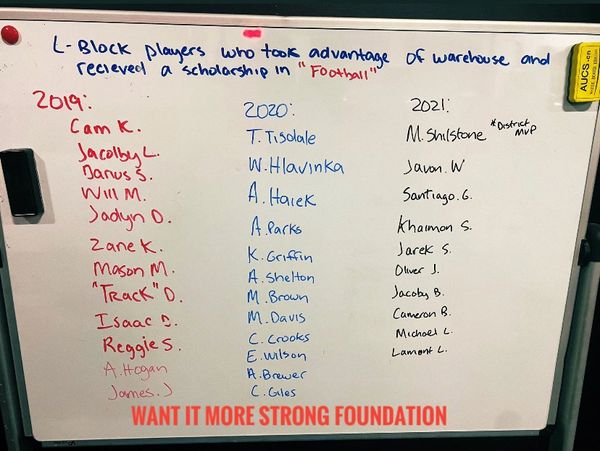 L-Block players who took advantage of warehouse and
recieved a scholarship in "Football"
2019:
Cam K.
Jacolby L.
Darius S.
Will M.
Jadyn D.
Zane K.
Mason M.
"Track" D.
Isaac D.
Reggie S.
A. Hogan
James. J
2020:
T. Tisdale
W. Hlavinka
A. Haiek
A. Parks
K. Griffin
A. Shelton
M. Brown
M. Davis
C. Crooks
E. Wilson
A. Brewer
C. Giles
2021:
M. Shilstone *District MVP
Javon. W
Santiago. G.
Khaimon S.
Jarek S.
Oliver J.
Jacoby B.
Cameron B.
Michael L.
Lamont L.
AUCS-en
WANT IT MORE STRONG FOUNDATION